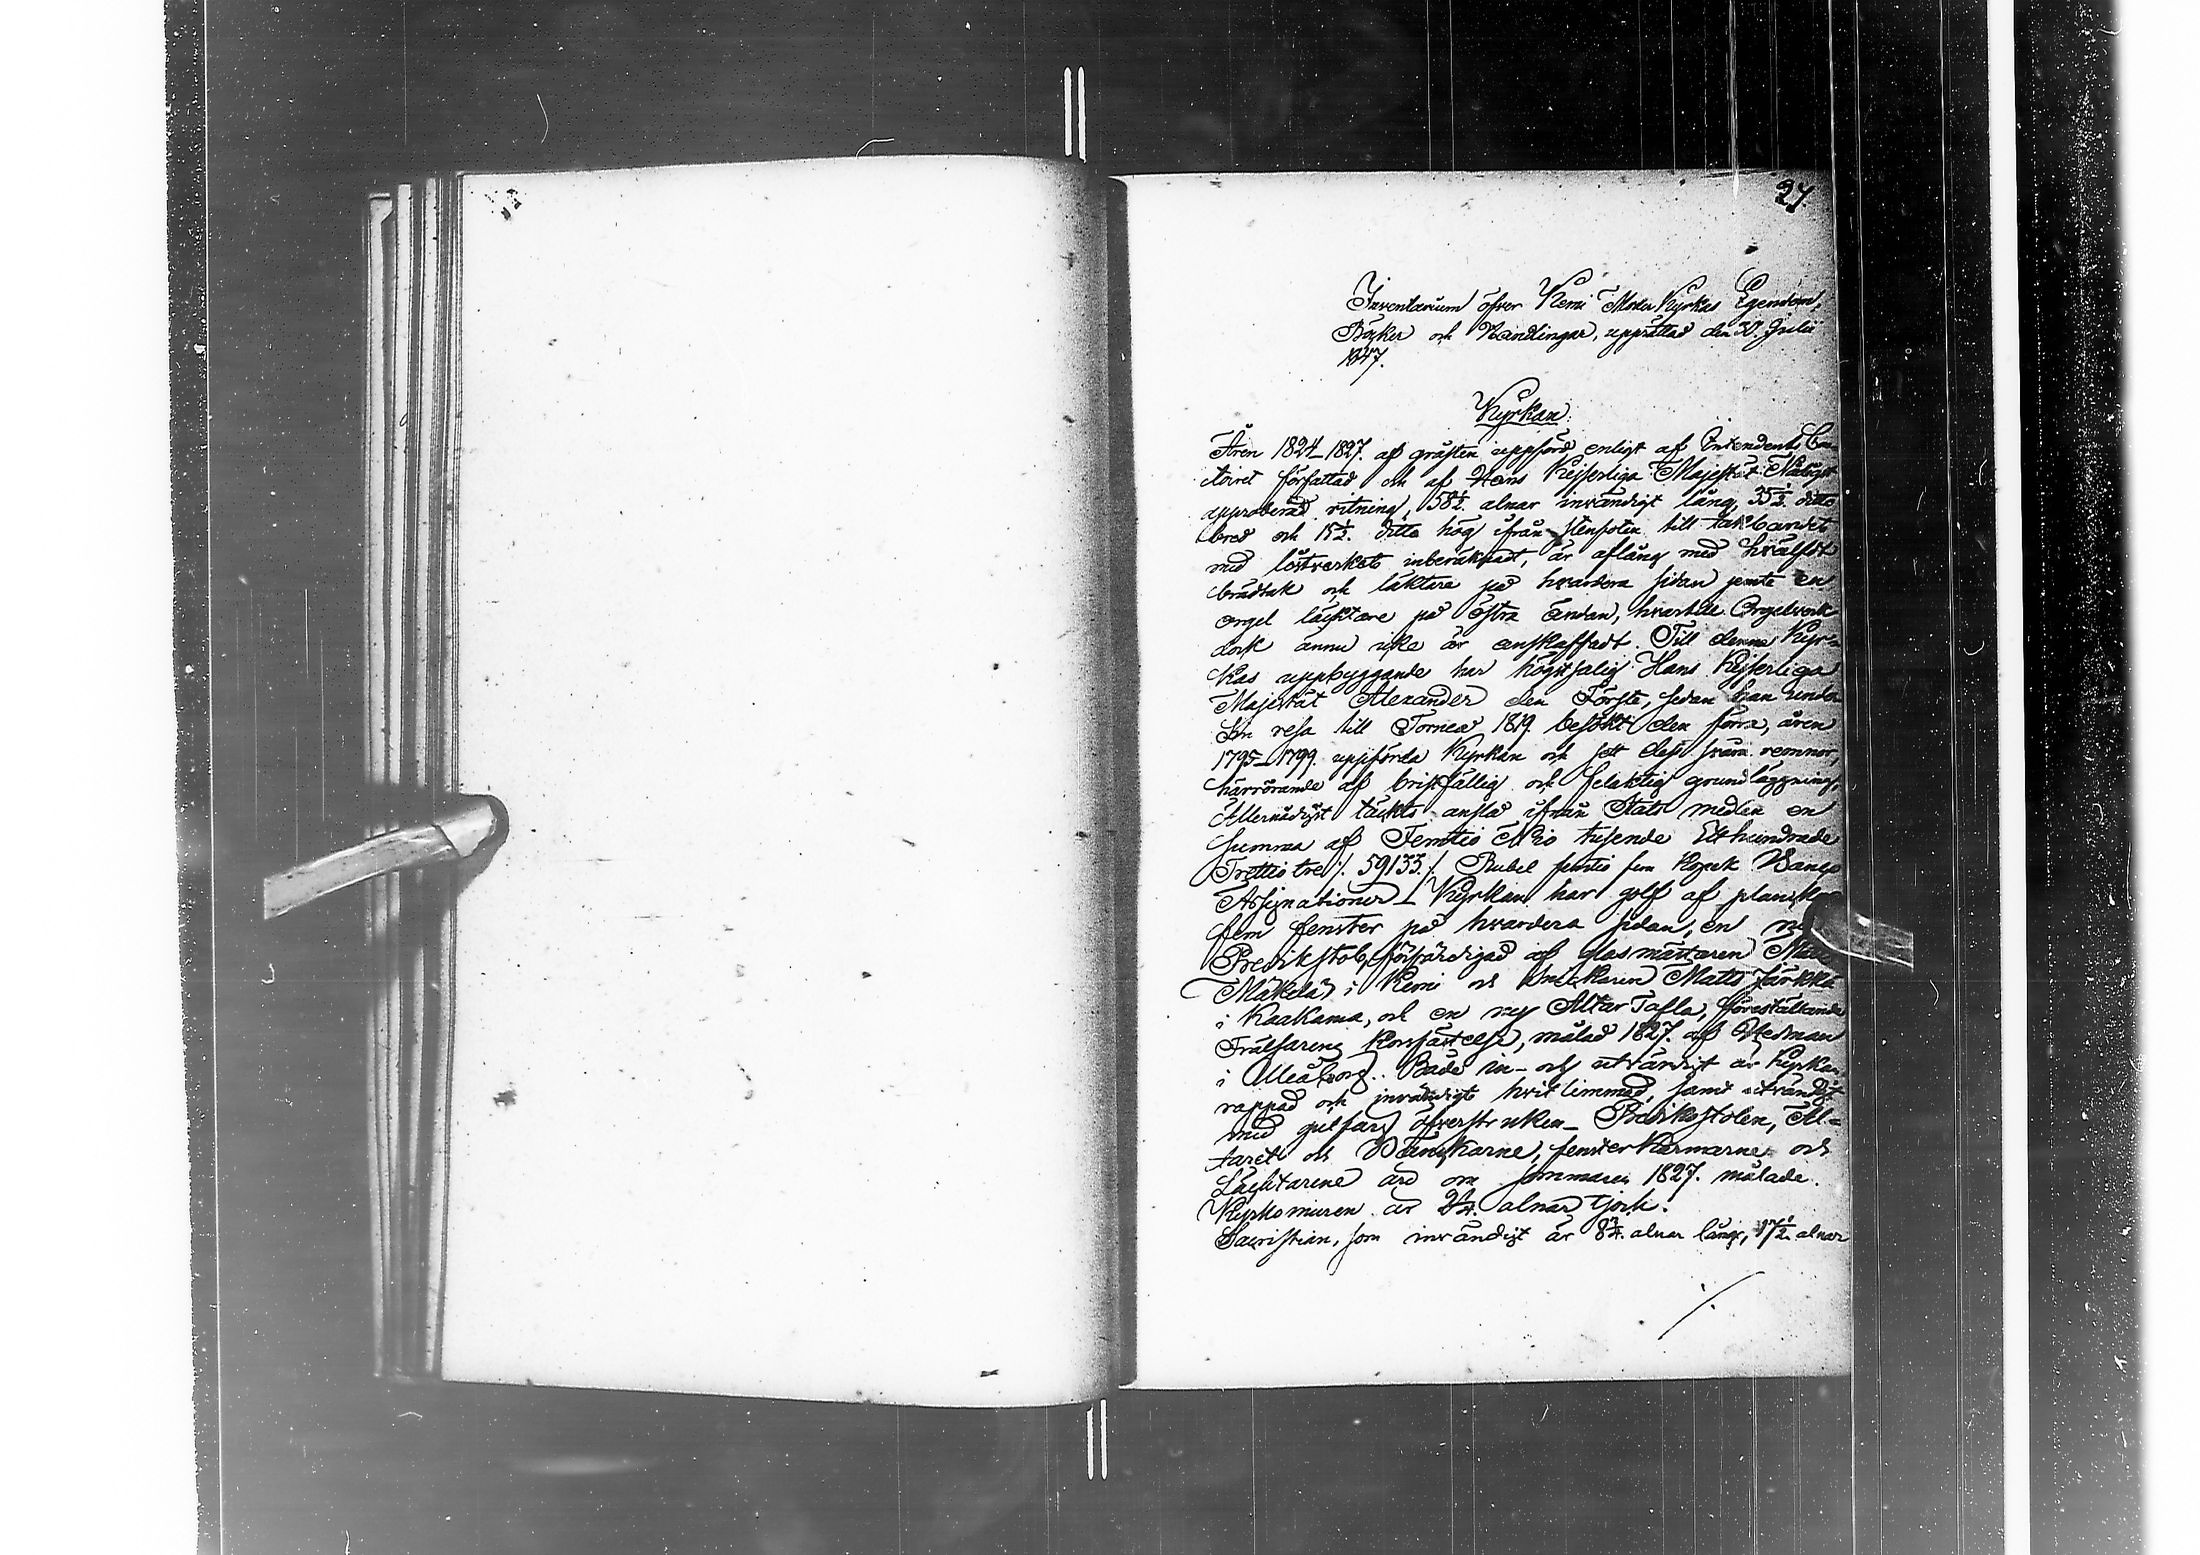 27.
Inventarium öfver Kemi Moder Kyrkas Egendom,
Böcker och Handlingar, upprättad den 30 Julii
1847.
Kyrkan.
Åren 1824–1827. af gråsten uppförd, enligt af Intendents Con-
toiret författad och af Hans Kejserliga Majestät Nådigst
approberad ritning, 58½. alnar invändigt lång, 35½. ditto
bred och 15½. ditto hög ifrån stenfoten till takbandet
med löstverkets inberäknadt, är aflång med hvälfdt
brädtak och läktare på hvardera sidan jemte en
orgel läcktare på östra ändan, hvartill Orgelverk
dock ännu icke är anskaffadt. Till denna Kyr-
kas uppbyggande har högtsalig Hans Kejserliga
Majestät Alexander den Förste, sedan han under
Sin resa till Torneå 1819. besökt den förra, åren
1795–1799. uppförda Kyrkan och sett dess svåra remnor,
härrörande af bristfällig och felaktig grundläggning,
Allernådigst täckts anslå ifrån Stats medlen en
summa af Femtio Nio tusende Ett hundrade
Trettio tre /. 59133./. Rubel femtio fem Kopek Banco
Assignationer – Kyrkan har golf af plankor
fem fenster på hvardera sidan, en
Predikstol, förfärdigad af glasmästaren
Mäkelä i Kemi och snickaren Matts Järkkä
i Kaakama, och en ny Altar Tafla, föreställande
Frälsarens Korsfästelse, målad 1827. af Hedman
i Uleåborg. Både in- och utvändigt är Kyrkan
rappad och invändigt hvitlimmad, samt utvändigt
med gulfärg öfverstruken – Predikstolen, Al-
taret och Bänkarne, fensterkarmarne och
Läcktarene äro om sommaren 1827. målade.
Kyrkomuren är 2¼. alnar tjock.
Sacristian, som invändigt är 8¾. alnar lång, 17½ alnar
./.